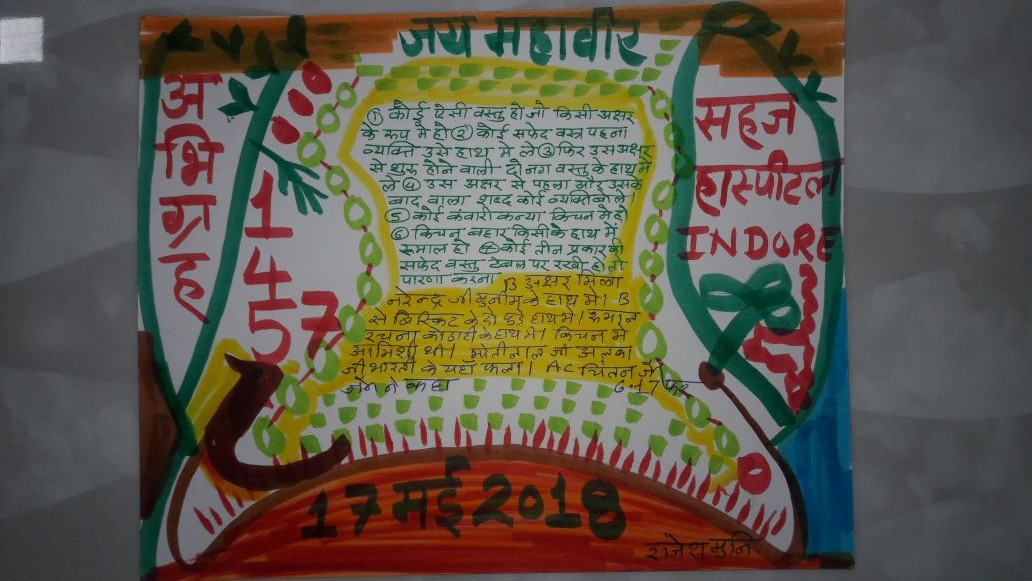 जय महावीर
अभिग्रह
1457
सहज
हास्पीटल
INDORE
① कोई ऐसी वस्तु हो जो किसी अक्षर
के रूप में हो ② कोई सफेद वस्त्र पहना
व्यक्ति उसे हाथ में ले ③ फिर उस अक्षर
से शुरू होने वाली दो नग वस्तु के हाथ में
ले ④ उस अक्षर से पहला और उसके
बाद वाला शब्द कोई व्यक्ति बोले।
⑤ कोई कंवारी कन्या किचन में हो
⑥ किचन बहार किसी के हाथ में
रूमाल हो ⑦ कोई तीन प्रकार की
सफेद वस्तु टेबल पर रखी हो तो
पारणा करना B अक्षर मिला
नरेन्द्र जी मुनीम के हाथ में। B
से बिस्किट के दो पुड़े हाथ में। रूमाल
रचना कोठारी के हाथ में। किचन में
आमिशा थी। मोतीलाल जी अलका
जी भारती के यहाँ फला। AC चिंतन जी
जैन ने कहा 6:17 पर
17 मई 2018
राजेश मुनि